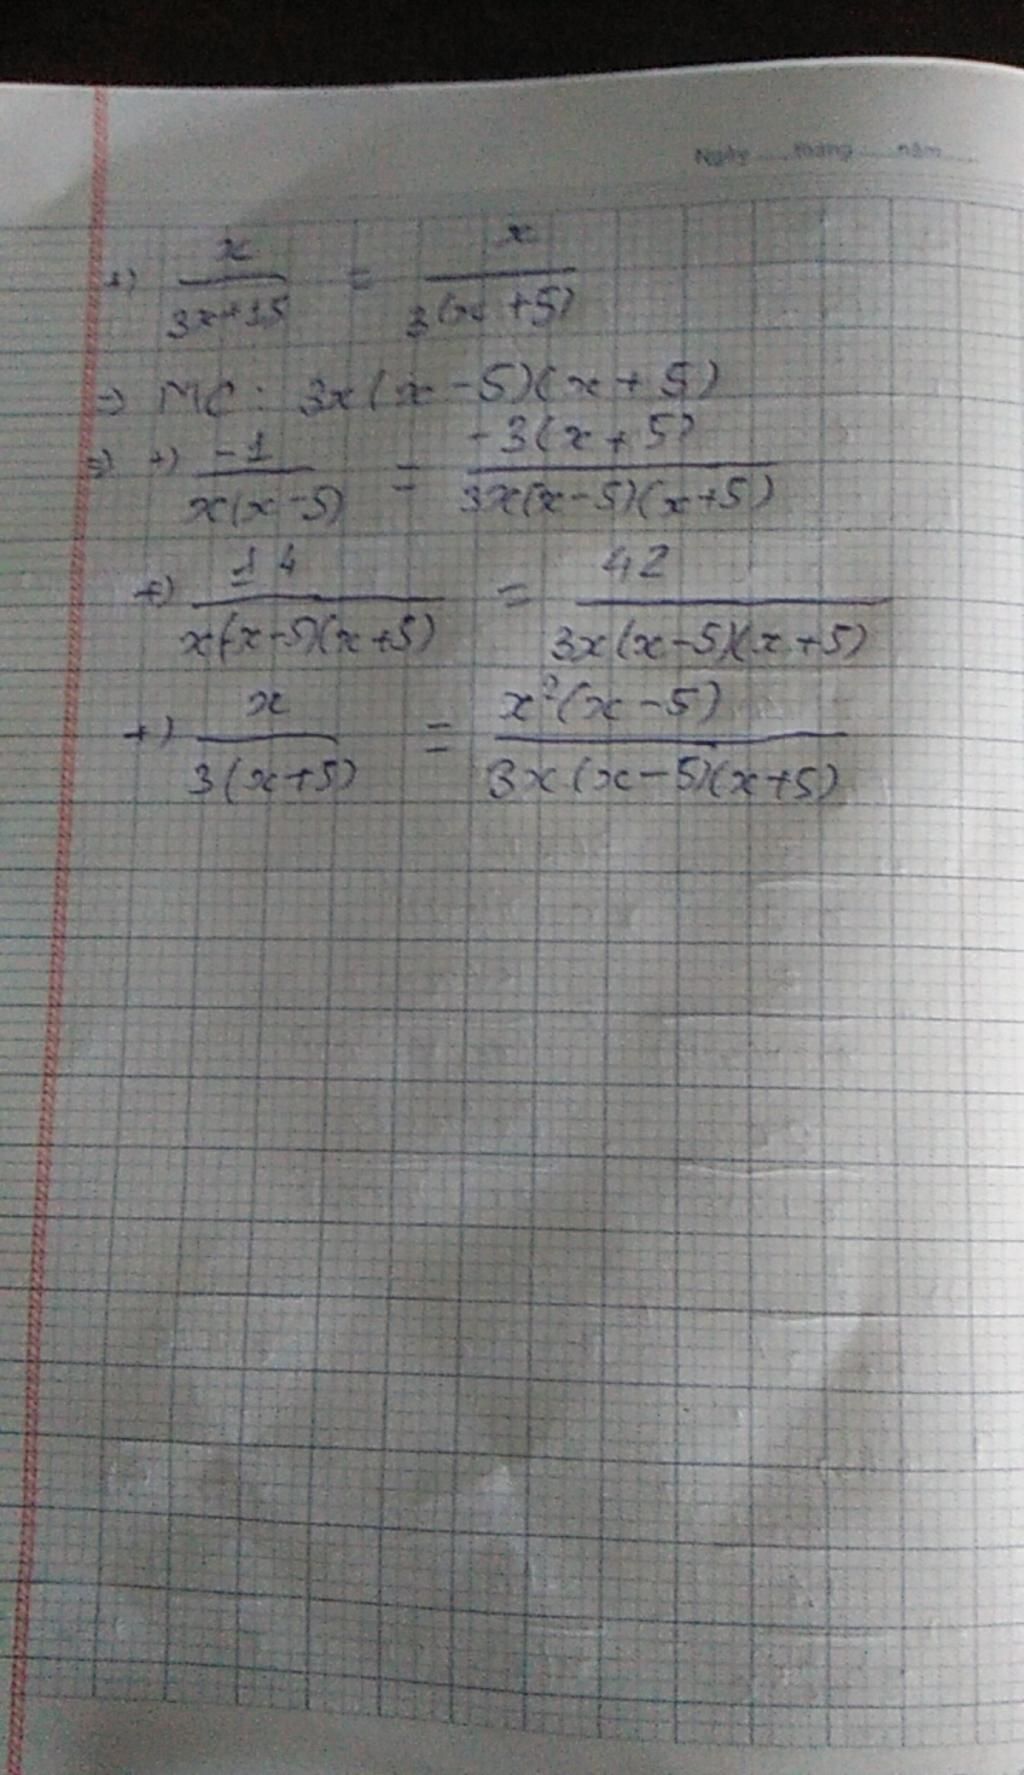 Ngày ..... tháng ..... năm .....
+) x/(3x+15) = x/(3(x+5))
=> MC: 3x(x-5)(x+5)
=> +) -1/(x(x-5)) = -3(x+5)/(3x(x-5)(x+5))
+) 14/(x(x-5)(x+5)) = 42/(3x(x-5)(x+5))
+) x/(3(x+5)) = x²(x-5)/(3x(x-5)(x+5))